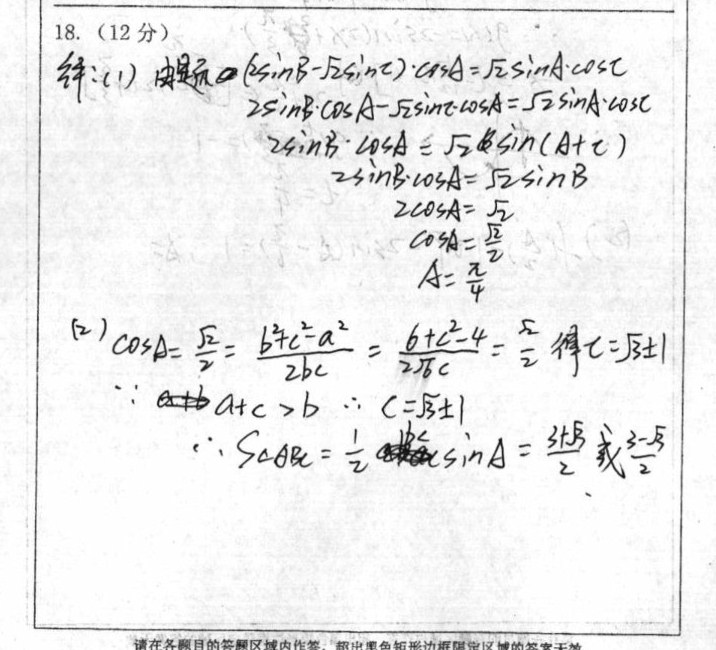 18.（12分）
解:(1) 由题 (2sinB-√2sinC)·cosA=√2sinA·cosC
2sinB·cosA-√2sinC·cosA=√2sinA·cosC
2sinB·cosA=√2sin(A+C)
2sinB·cosA=√2sinB
2cosA=√2
cosA=√2/2
A=π/4
(2) cosA=√2/2=(b²+c²-a²)/2bc=(6+c²-4)/2√6c=√2/2 得c=√3±1
∵ a+c>b ∴ c=√3±1
∴ S△ABC=1/2bcsinA=(3+√3)/2 或 (3-√3)/2
请在各题目的答题区域内作答，超出黑色矩形边框限定区域的答案无效